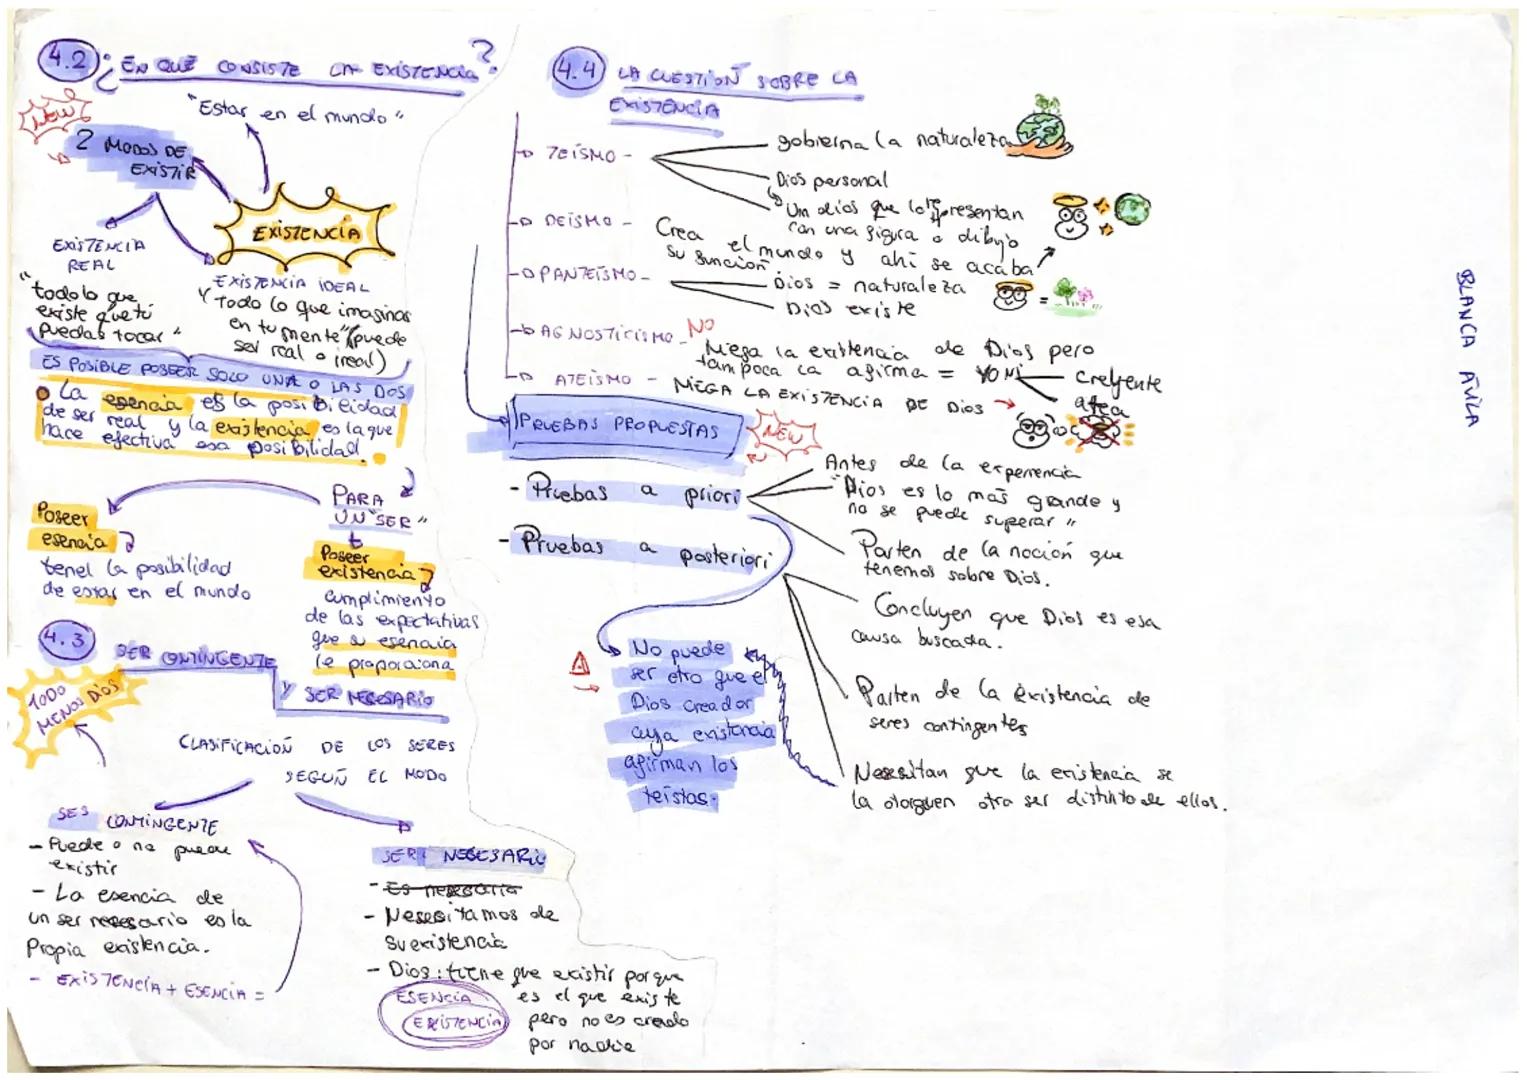 4.2 ¿EN QUÉ CONSISTE LA EXISTENCIA?
"Estar en el mundo"
New
2 MODOS DE
EXISTIR
EXISTENCIA
EXISTENCIA
REAL
"todo lo que
existe que tú
puedas tocar"
EXISTENCIA IDEAL
"Todo lo que imaginas
en tu mente" (puede
ser real o ireal)
ES POSIBLE POSEER SOLO UNA O LAS DOS
La esencia es la posibilidad
de ser real y la existencia es la que
hace efectiva esa posibilidad.
PARA
UN "SER"
Poseer
esencia
tenel la posibilidad
de estar en el mundo
Poseer
existencia
cumplimienyo
de las expectativas
que su esencia
le proporciona
4.3 SER CONTINGENTE
Y SER NECESARIO
TODO
MENOS DIOS
CLASIFICACIÓN DE LOS SERES
SEGUÑ EL MODO
SES CONTINGENTE
- Puede o no puede
existir
- La esencia de
un ser necesario es la
Propia existencia.
- EXISTENCIA + ESENCIA =
SER NECESARIO
- Es necesaria
- Nesesitamos de
su existencia
- Dios: tiene que existir porque
es el que existe
pero no es creado
por nadie
ESENCIA
EXISTENCIA
4.4 LA CUESTIOÑ SOBRE LA
EXISTENCIA
TEÍSMO -
gobierna la naturaleza
Dios personal
Un dios que lo representan
con una figura o dibujo
DEÍSMO - Crea el mundo y ahí se acaba
su función
PANTEÍSMO -
Dios = naturaleza
Dios existe
AGNOSTICISMO - NO
Niega la existencia de Dios pero
tampoca la afirma = YO NI
creeyente
atea
ATEÍSMO - NIEGA LA EXISTENCIA DE DIOS
PRUEBAS PROPUESTAS
NEW
- Pruebas a priori
Antes de la experiencia
"Dios es lo más grande y
no se puede superar"
Parten de la noción que
tenemos sobre Dios.
- Pruebas a posteriori
Concluyen que Dios es esa
causa buscada.
Parten de la existencia de
seres contingentes
Nesesitan que la existencia se
la otorguen otra ser distinto de ellos.
No puede
ser otro que el
Dios creador
cuya existencia
afirman los
teístas.
BLANCA ÁVILA